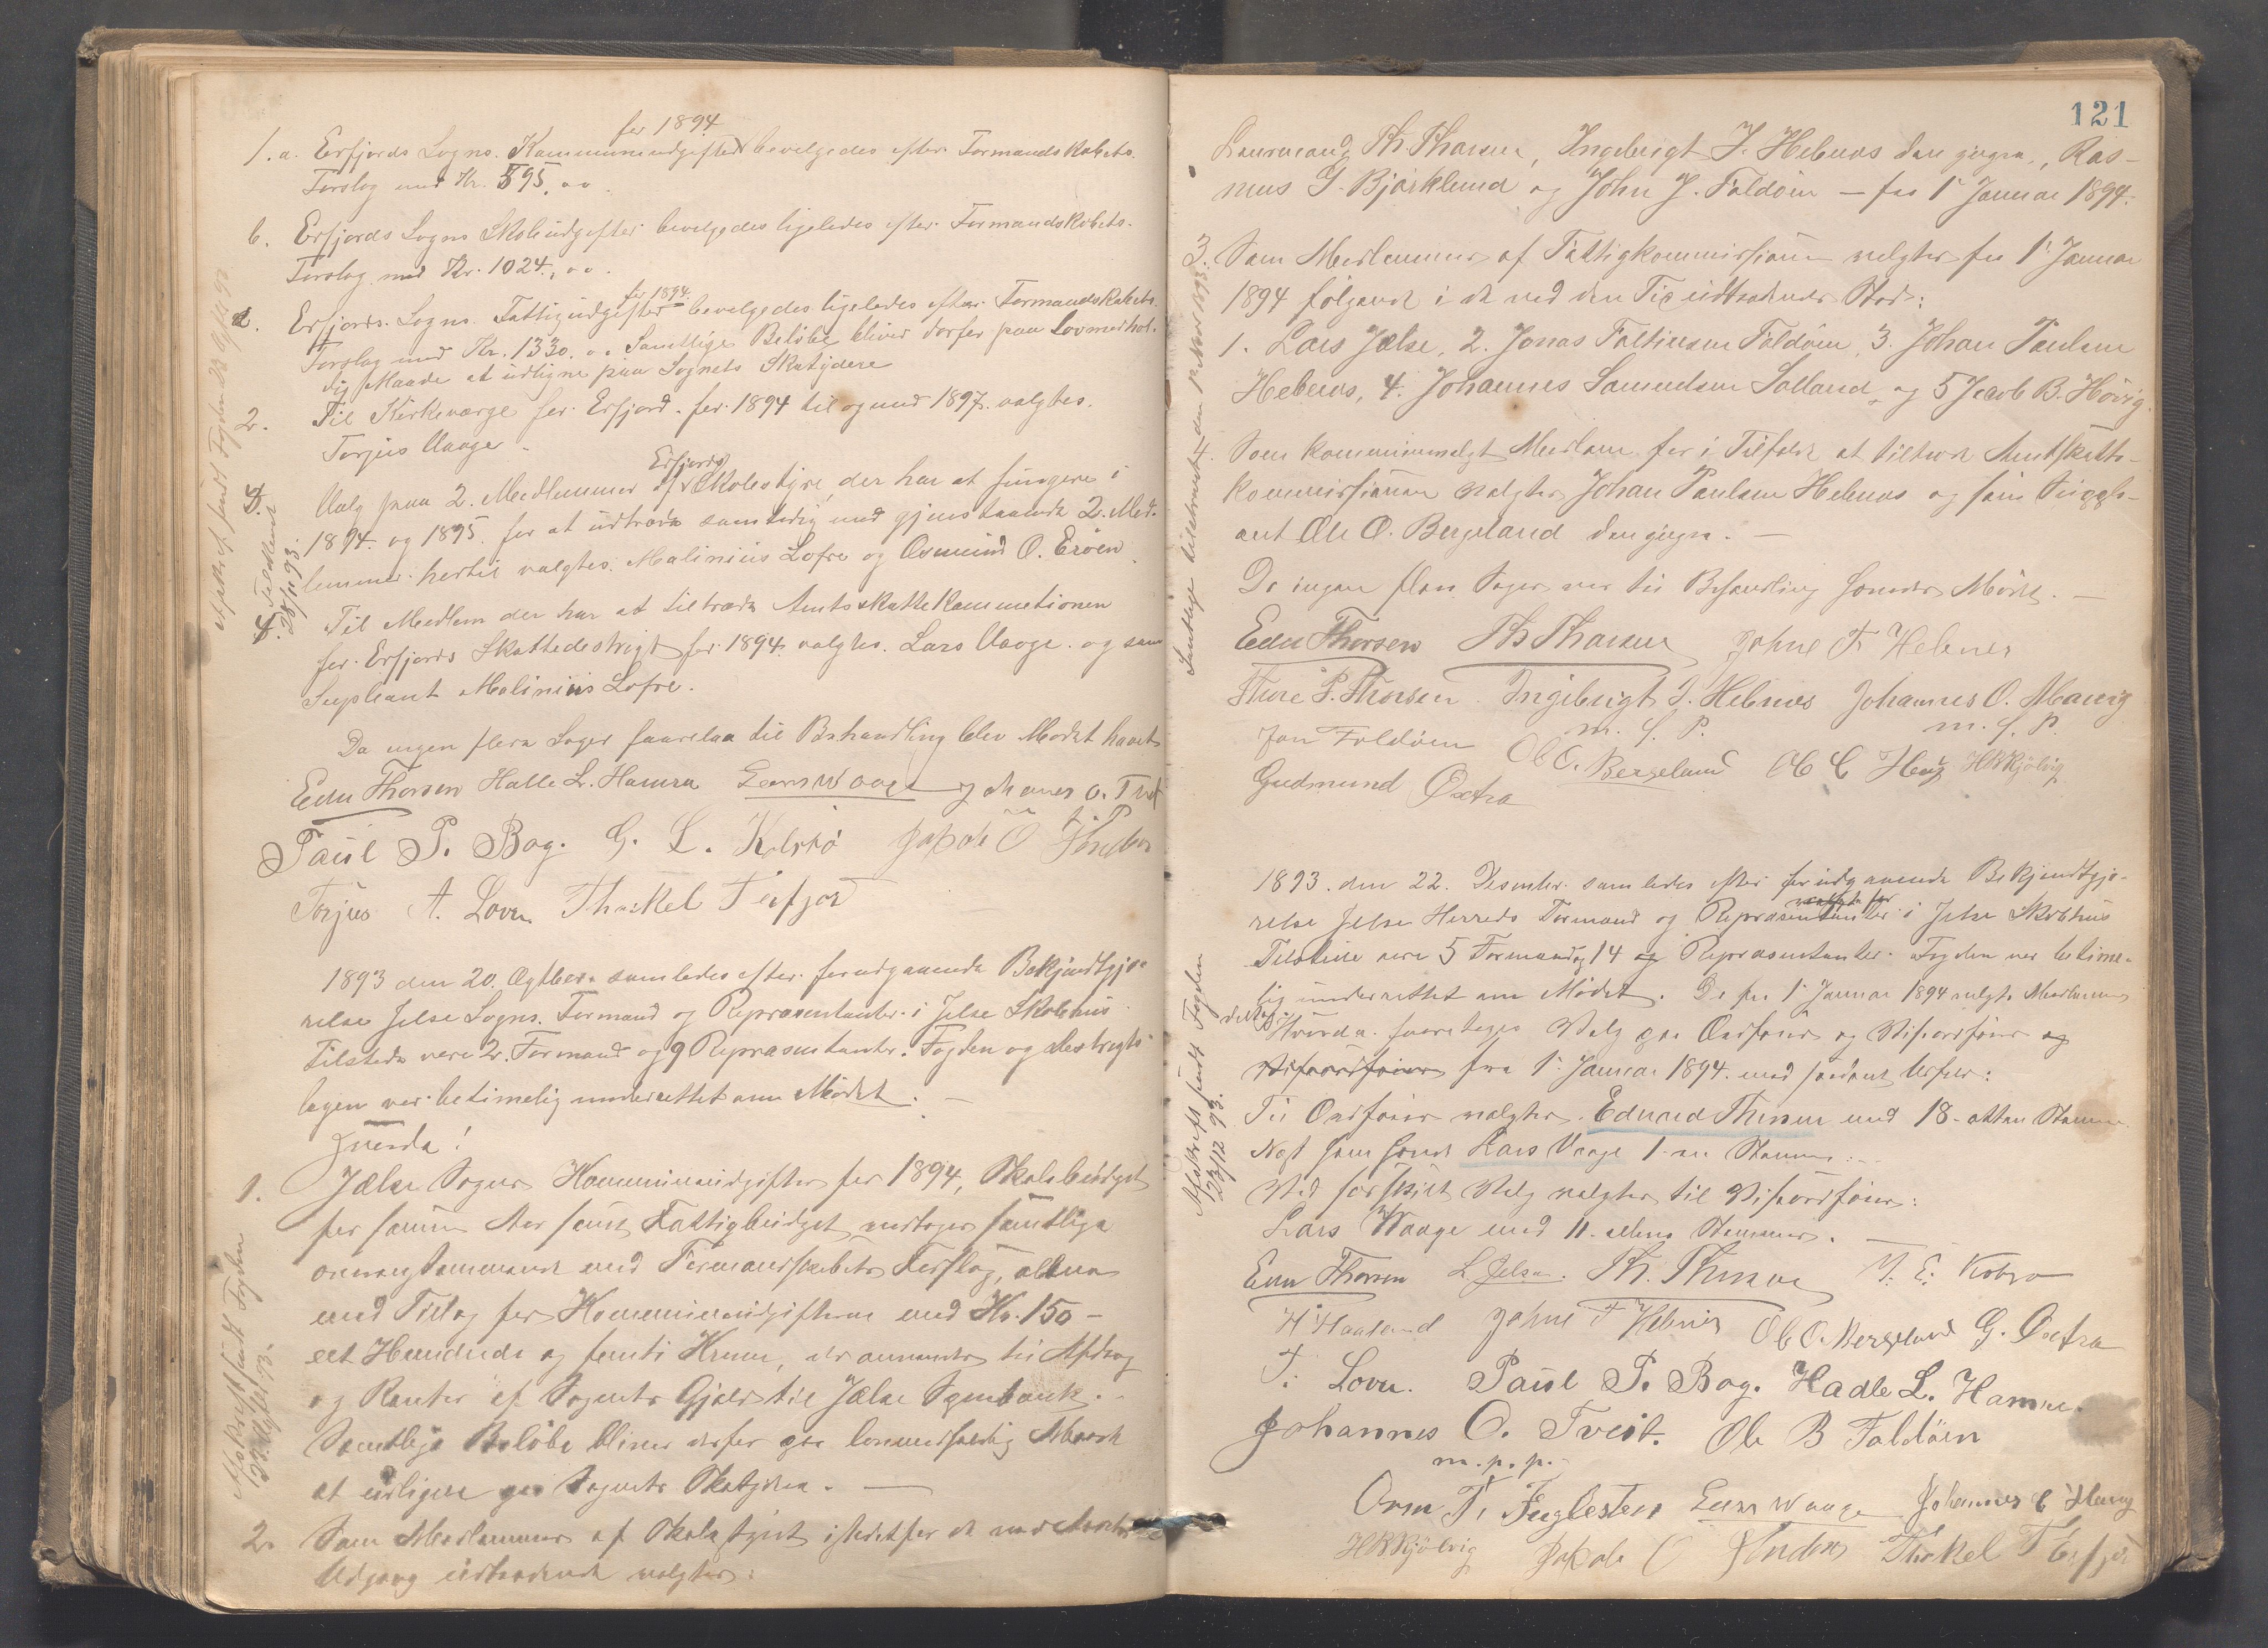 for 1894
1. a. Erfjords Sogns. Kommuneudgifter bevelgedes efter Formandskabets
Forslag med Kr. 595,00.
b. Erfjords Sogns Skoleudgifter bevelgedes ligeledes efter Formandskabets
Forslag med Kr. 1024,00.
for 1894.
Erfjords Sogns Fattigudgifter bevelgedes ligeledes efter Formandskabets
Forslag med Kr. 1330.00 Samtlige Beløbe bliver derfor paa Lovmedhol-
dig Maade at udligne paa Sognets Skatydere
2. Til Kirkeværge for Erfjord for 1894 til og med 1897 valgtes.
Torjus Vaage.
Erfjords
3. Valg paa 2. Medlemmer af Skolestyre, der har at fungere i
1894. og 1895. for at udtræde samtidig med gjenstaaende 2. Med-
lemmer. hertil valgtes. Malinius Lofre og Osmund O. Erøen.
4. Til Medlem der har at tiltræde Amtsskattekommetionen
for Erfjords Skattedestrigt for 1894 valgtes. Lars Vaage. og som
Supleant Malinius Lofre.
Da ingen flere Sager foarelaa til Behandling blev Mødet hævet
Edu Thorsen Halle L. Hamra Lars Waage Johanes O. Tvet
Paul P. Bog. G. L. Kolskø Jakob O
Torjus A. Lovn Thorkel T Erfjor
1893 den 20. Ogtber. samledes efter forudgaaende Bekjendtgjø-
relse Jelse Sogns. Formand og Repræsentanter i Jelse Skolehus
Tilstede vare 2. Formænd og 9 Repræsentanter. Fogden og destrigts-
lægen var betimelig underrettet om Mødet. —
Hvorda!
1. Jælse Sogns Kommuneudgifter for 1894, Skolebudget
for samme Aar samt Fattigbudget vedtoges samtlige
overensstemmende med Formandskabets Forslag, allene
med Tillæg for Kommuneudgifterne med Kr. 150 –
eet Hundrede og femti Kroner, der anvendes til Afdrag
og Renter af Sognets Gjæld til Jælse Sparebank.
Samtlige Beløbe bliver derfor paa lovmedholdig Maade
at udligne paa Sognets Skatydere. —
2. Som Medlemmer af Skolestyret istedetfor de ved Aarets
Udgang udtrædende valgtes:
Afskrift sendt Fogden
28/11 93.
Afskrift sendt Fogden
121
Lensmand Th. Thorsen, Ingebrigt J. Hebnes den yngre, Ras-
mus J. Bjørklund og John J. Foldøen — fra 1 Januar 1894.
3. Som Medlemmer af Fattigkommissionen valgtes fra 1 Januar
1894 følgende i de ved den Tid udtrædendes Sted:
1. Lars Jelse, 2. Jonas Foltinsen Foldøen, 3. Johan Paulsen
Hebnes, 4. Johannes Samuelsen Salland, og 5 Jacob B. Høivig.
4. Som kommunevalgt Medlem for i Tilfælde at tiltræde Amtskatte-
kommissionen valgtes Johan Paulsen Hebnes og som Supple-
ant Ole O. Bergeland den yngre. —
Da ingen flere Sager var til Behandling hævedes Mødet. —
Edu Thorsen Th Thorsen Johne T. Hebnes
Thore P. Thorsen. Ingebrigt J. Hebnes Johannes O. Mævig
m. f. P. m. f. P.
Jon Foldøen Ole O. Bergeland O C Haug HRKjølvig
Gudmund Øxtra
1893. den 22. Desember samledes efter forudgaaende Bekjendtgjø-
relse Jelse Herreds Formand og Repræsentanter i Jelse Skolehus
Tilstede vare 5 Formænd og 14 og Repræsentanter. Fogden var betime-
lig underrettet om Mødet. De fra 1 Januar 1894 valgte Medlemmer
deltog. Hvorda. foaretoges Valg paa Ordfører og Viseordfører og
Viseordfører fra 1 Januar 1894. med saadant Udfald:
Til Ordfører valgtes. Edvard Thorsen med 18-atten Stemmer.
Næst ham havde Lars Vaage 1 - en Stemme. —
Ved særskilt Valg valgtes til Viseordfører:
Lars Waage med 11. elleve Stemmer. —
Edu Thorsen L Jelsa. Th. Thorsen T. E. Kobro
H Haaland Johne T Hebnes Ole O. Bergeland G. Øxtra
T. Lovn. Paul P. Bog. Hadle L. Hamre.
Johannes O. Tveit. Ole B Foldøen
m. p. p.
Orm T. Fuglesten Lars Waage Johannes C Haug
HRKjölvig Jakob O Thorkel T Erfjor
Samtlige tiltraadt den 12 Novbr 1893
Afskrift sendt Fogden
23/12 93.